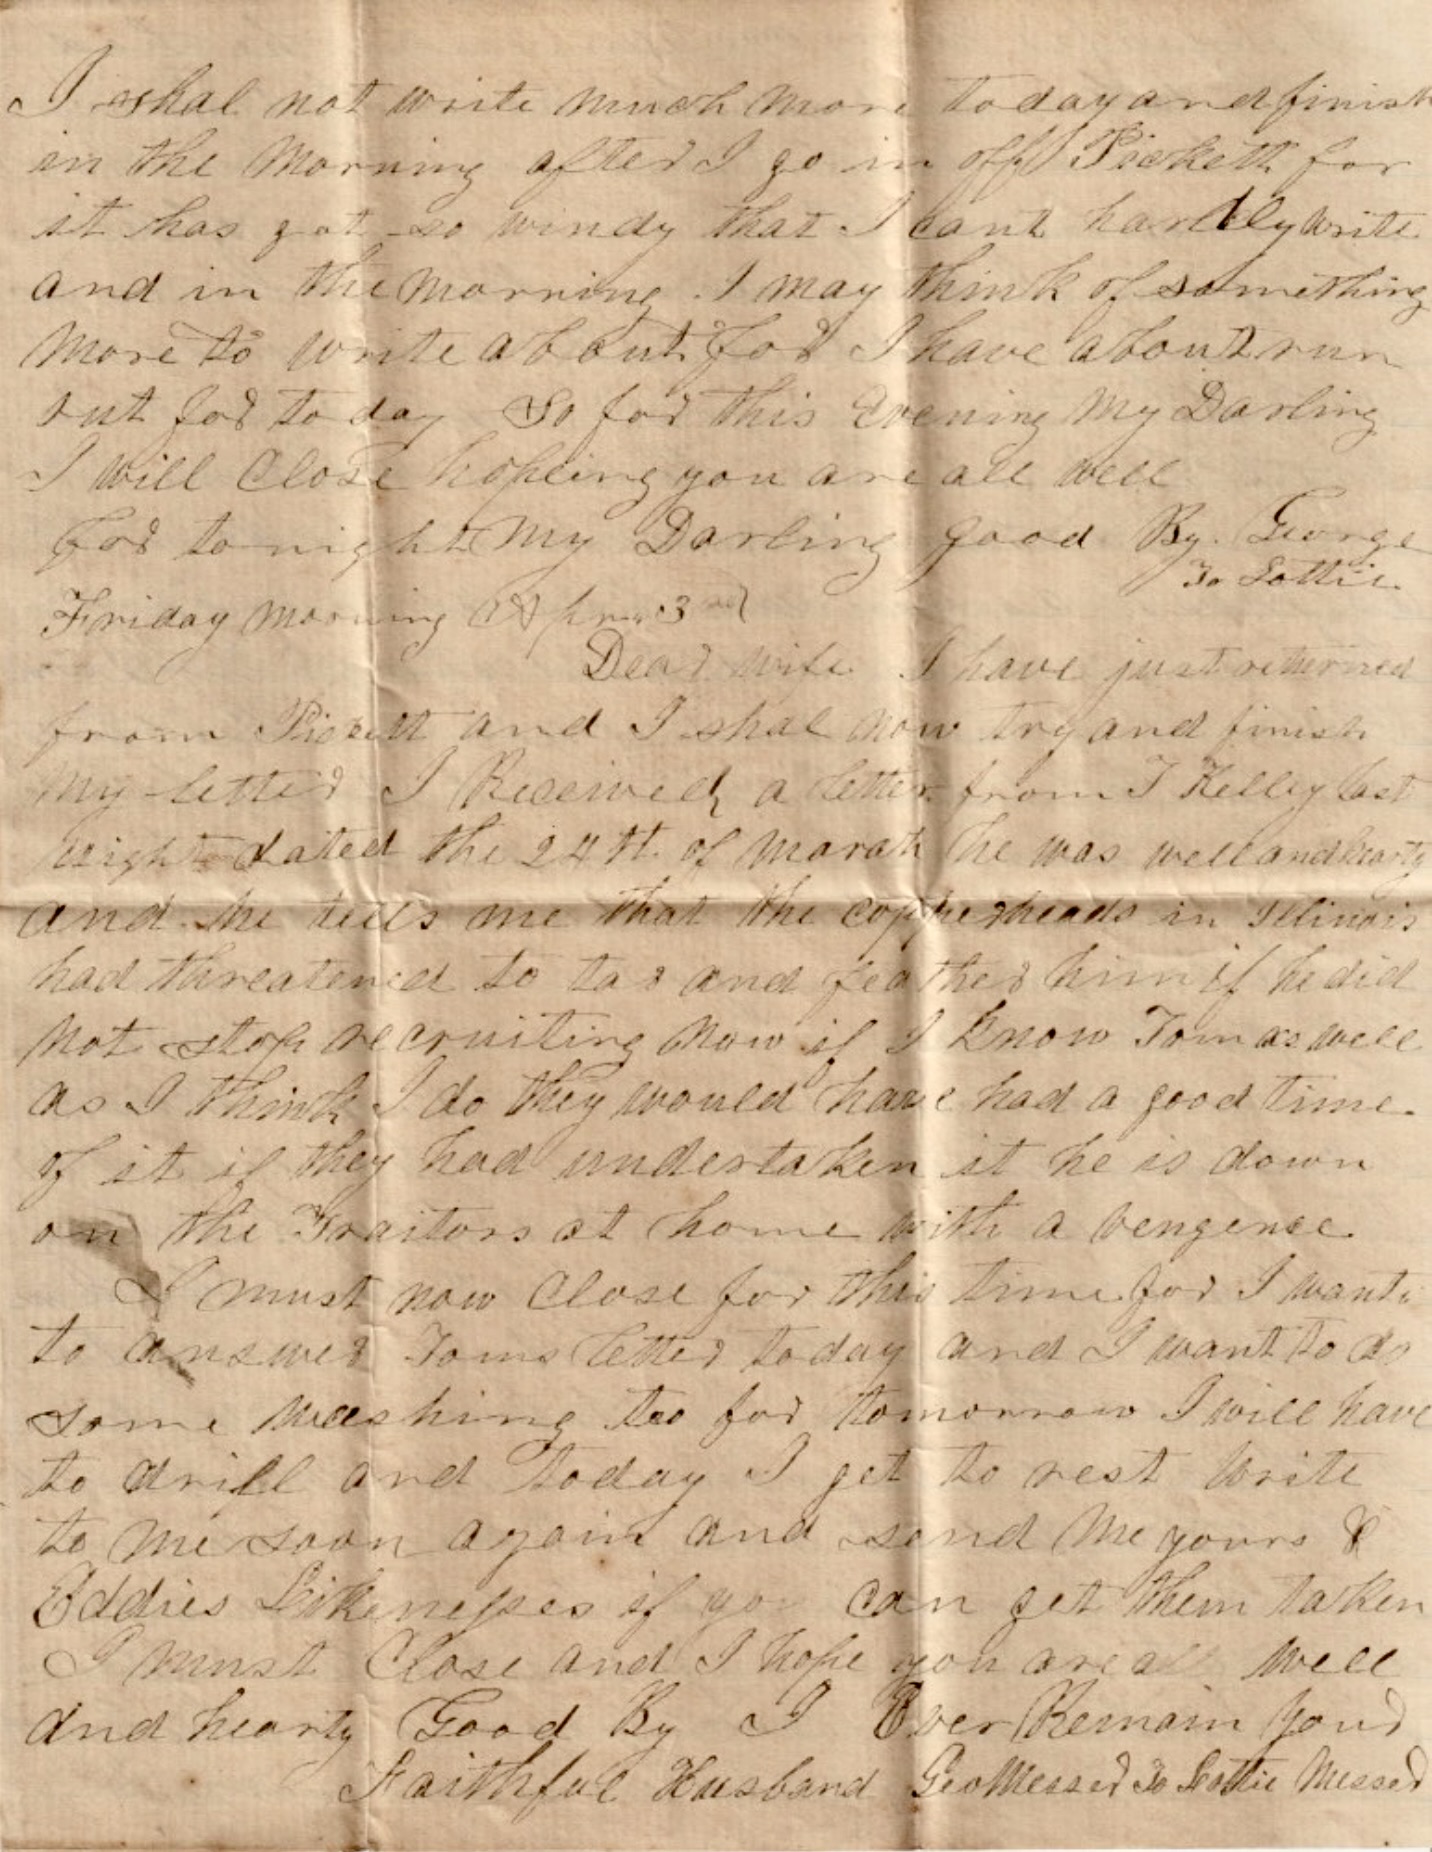 I shal not write much more today and finish
in the Morning after I go in off Pickett for
it has got so windy that I cant hardly write
and in the Morning I may think of something
More to write about for I have about run
out for to day So for this Evening My Darling
I will Close hopeing you are all well
For to night My Darling good By. George
To Lottie.
Friday Morning Apr. 3rd
Dear wife I have just returned
from Pickett and I shal now try and finish
My letter I Received a letter from T Kelley last
night dated the 24th of March he was well and hearty
and he tells me that the copperheads in Illinois
had threatened to tar and feather him if he did
not stop recruiting Now if I Know Tom as well
as I think I do they would have had a good time
of it if they had undertaken it he is down
on the Traitors at home with a vengence.
I must now Close for this time for I want
to answer Toms letter today and I want to do
some washing too for tomorrow I will have
to drill and today I get to rest Write
to me soon again and send Me yours &
Eddies Likenesses if you can get them taken
I must Close and I hope you are all well
and hearty Good By I Ever Remain Your
Faithful Husband Geo Messer To Lottie Messer